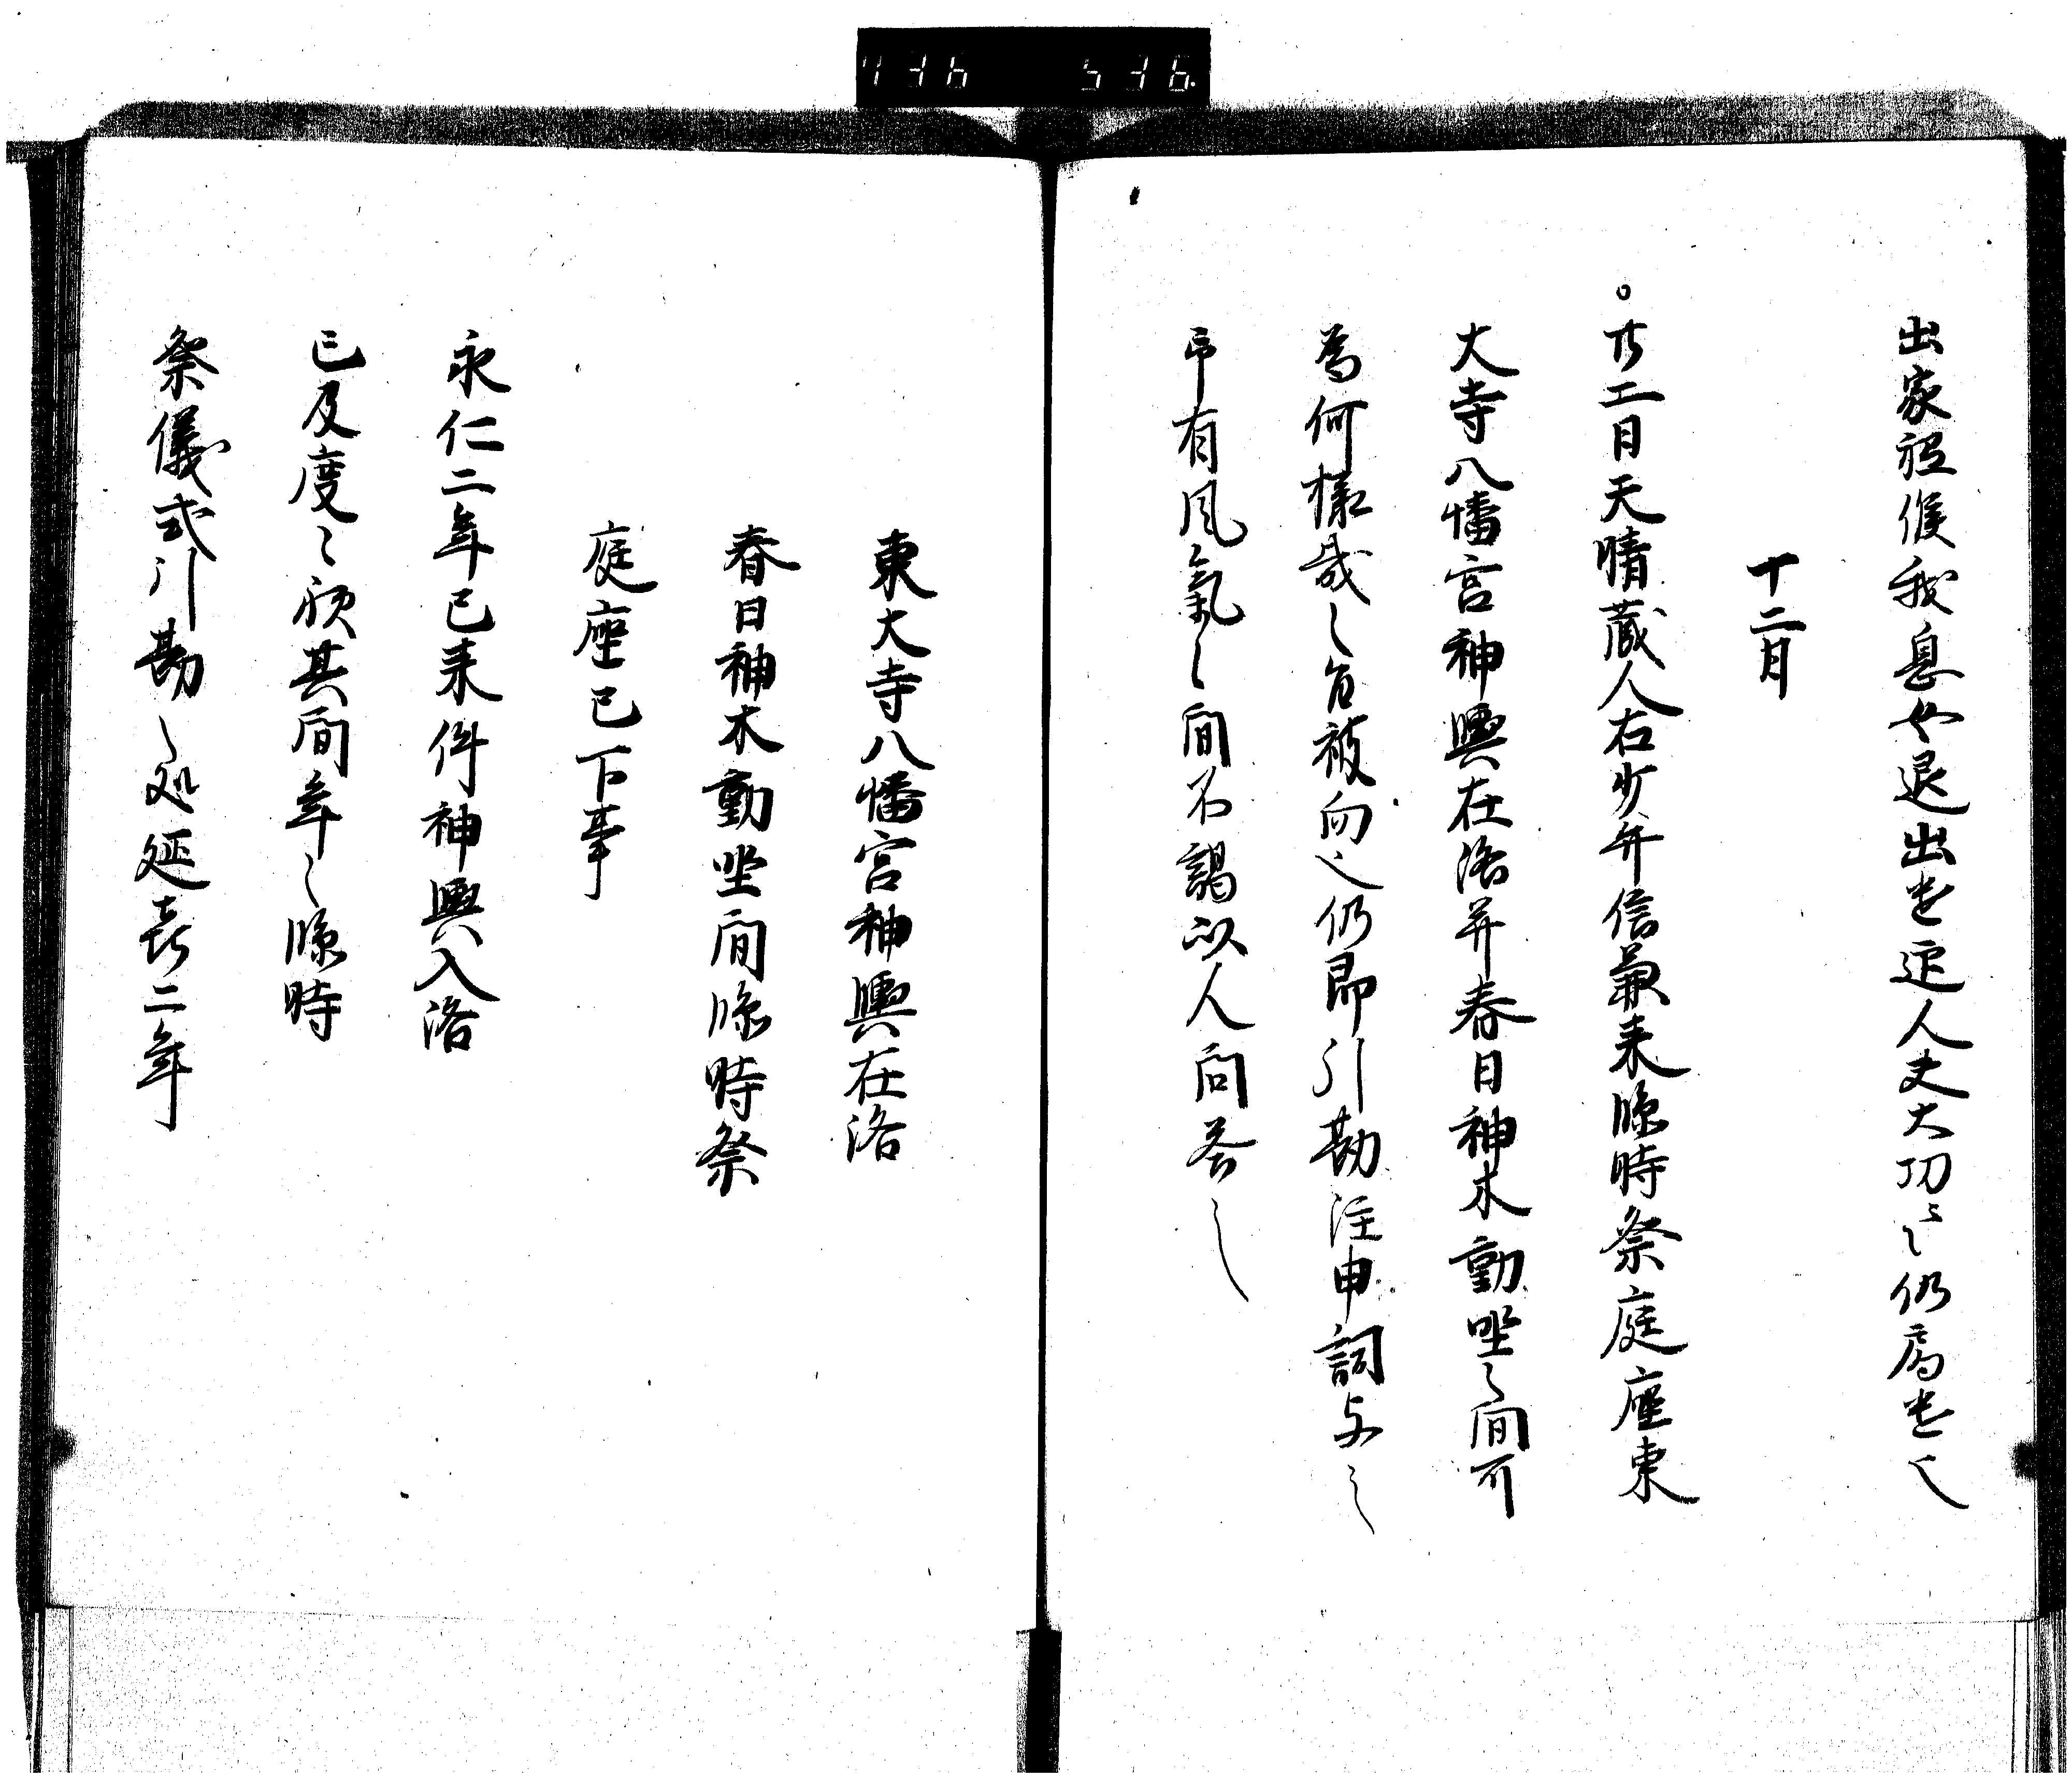 出家祗候我息女退出走迯人丈大功云々仍馬走之
十二月
。廿二日天晴蔵人右少弁信兼来臨時祭庭座東
大寺八幡宮神輿在洛并春日神木動坐之間可
為何様哉之由被問之仍即引勘注申詞与之
予有風氣之間不謁以人問答之
東大寺八幡宮神輿在洛
春日神木動坐間臨時祭
庭座已下事
永仁二年已来件神輿入洛
已及度々欤其間年々臨時
祭儀式引勘之処延喜二年